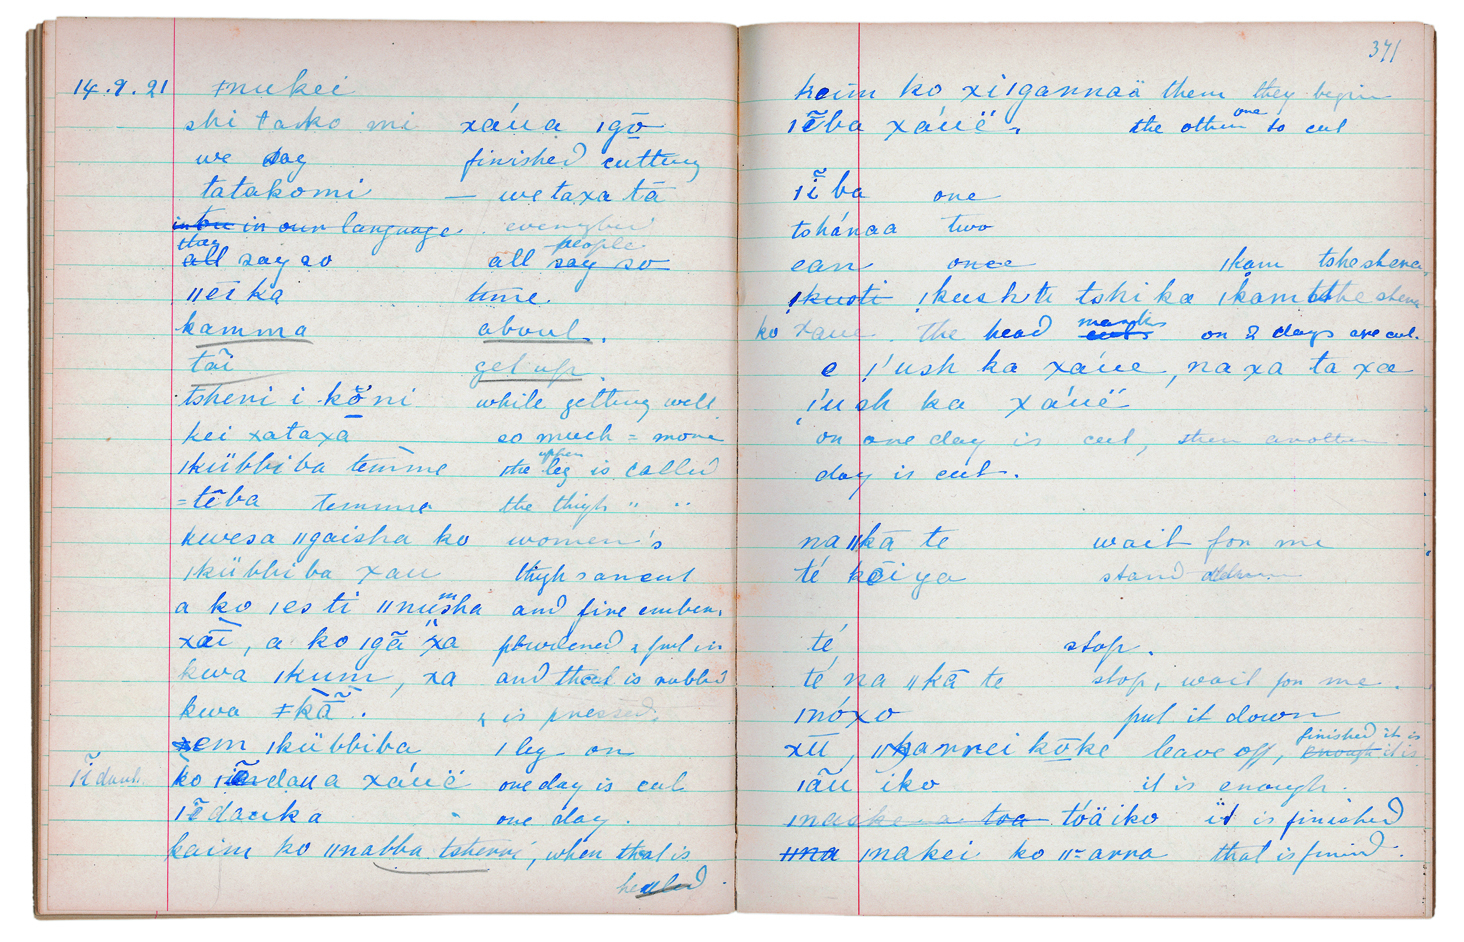 14.9.21 ǂnukei
shi tako mi xáua ǀgō
we say finished cutting
tatakomi — we taxa tā
in our language.
stay people
all say so all say so
ǁēi ka time
kamma about.
tãi get up.
tsheni i kõni while getting well
kei xataxa so much = move
upper
ǀkübbiba temme the leg is called
=tēba temme the thigh " "
kwesa ǁgaisha ko women's
ǀkübbiba xau thighs are cut
a ko ǀesti ǁnumsha and fire embers
xāī, a ko ǀgã xa powdered & put in
kwa ǀkum, xa and that is rubbed
kwa ǂkã. & is pressed.
xem ǀkübbiba 1 leg on
ko ǀ daua xáuë one day is cut
ǀẽdauka one day.
kaim ko ǁnabba tsheni, when that is
healed
371
kaim ko xiǀgannaä them they begin
ǀẽba xáuë. the other one to cut
ǀĩba one
tohánaa two
ean once ǀkam tsheshena
ǀkusti ǀkushti tshika ǀkam
ko xaue. the head marks cuts on 2 days are cut.
e ǀúsh ka xáue, naxa taxa
ǀúsh ka xáuë
on one day is cut, then another
day is cut.
naǁkā te wait for me
té kōiya stand
té stop.
té na ǁkā te stop, wait for me.
ǀnóxo put it down
finished it is
xū, ǁkannei kōke leave off, enough it is
ǀāu iko it is enough.
toa tóäiko it is finished
ǁna ǀnakei ko ǁ=arra that is finind.